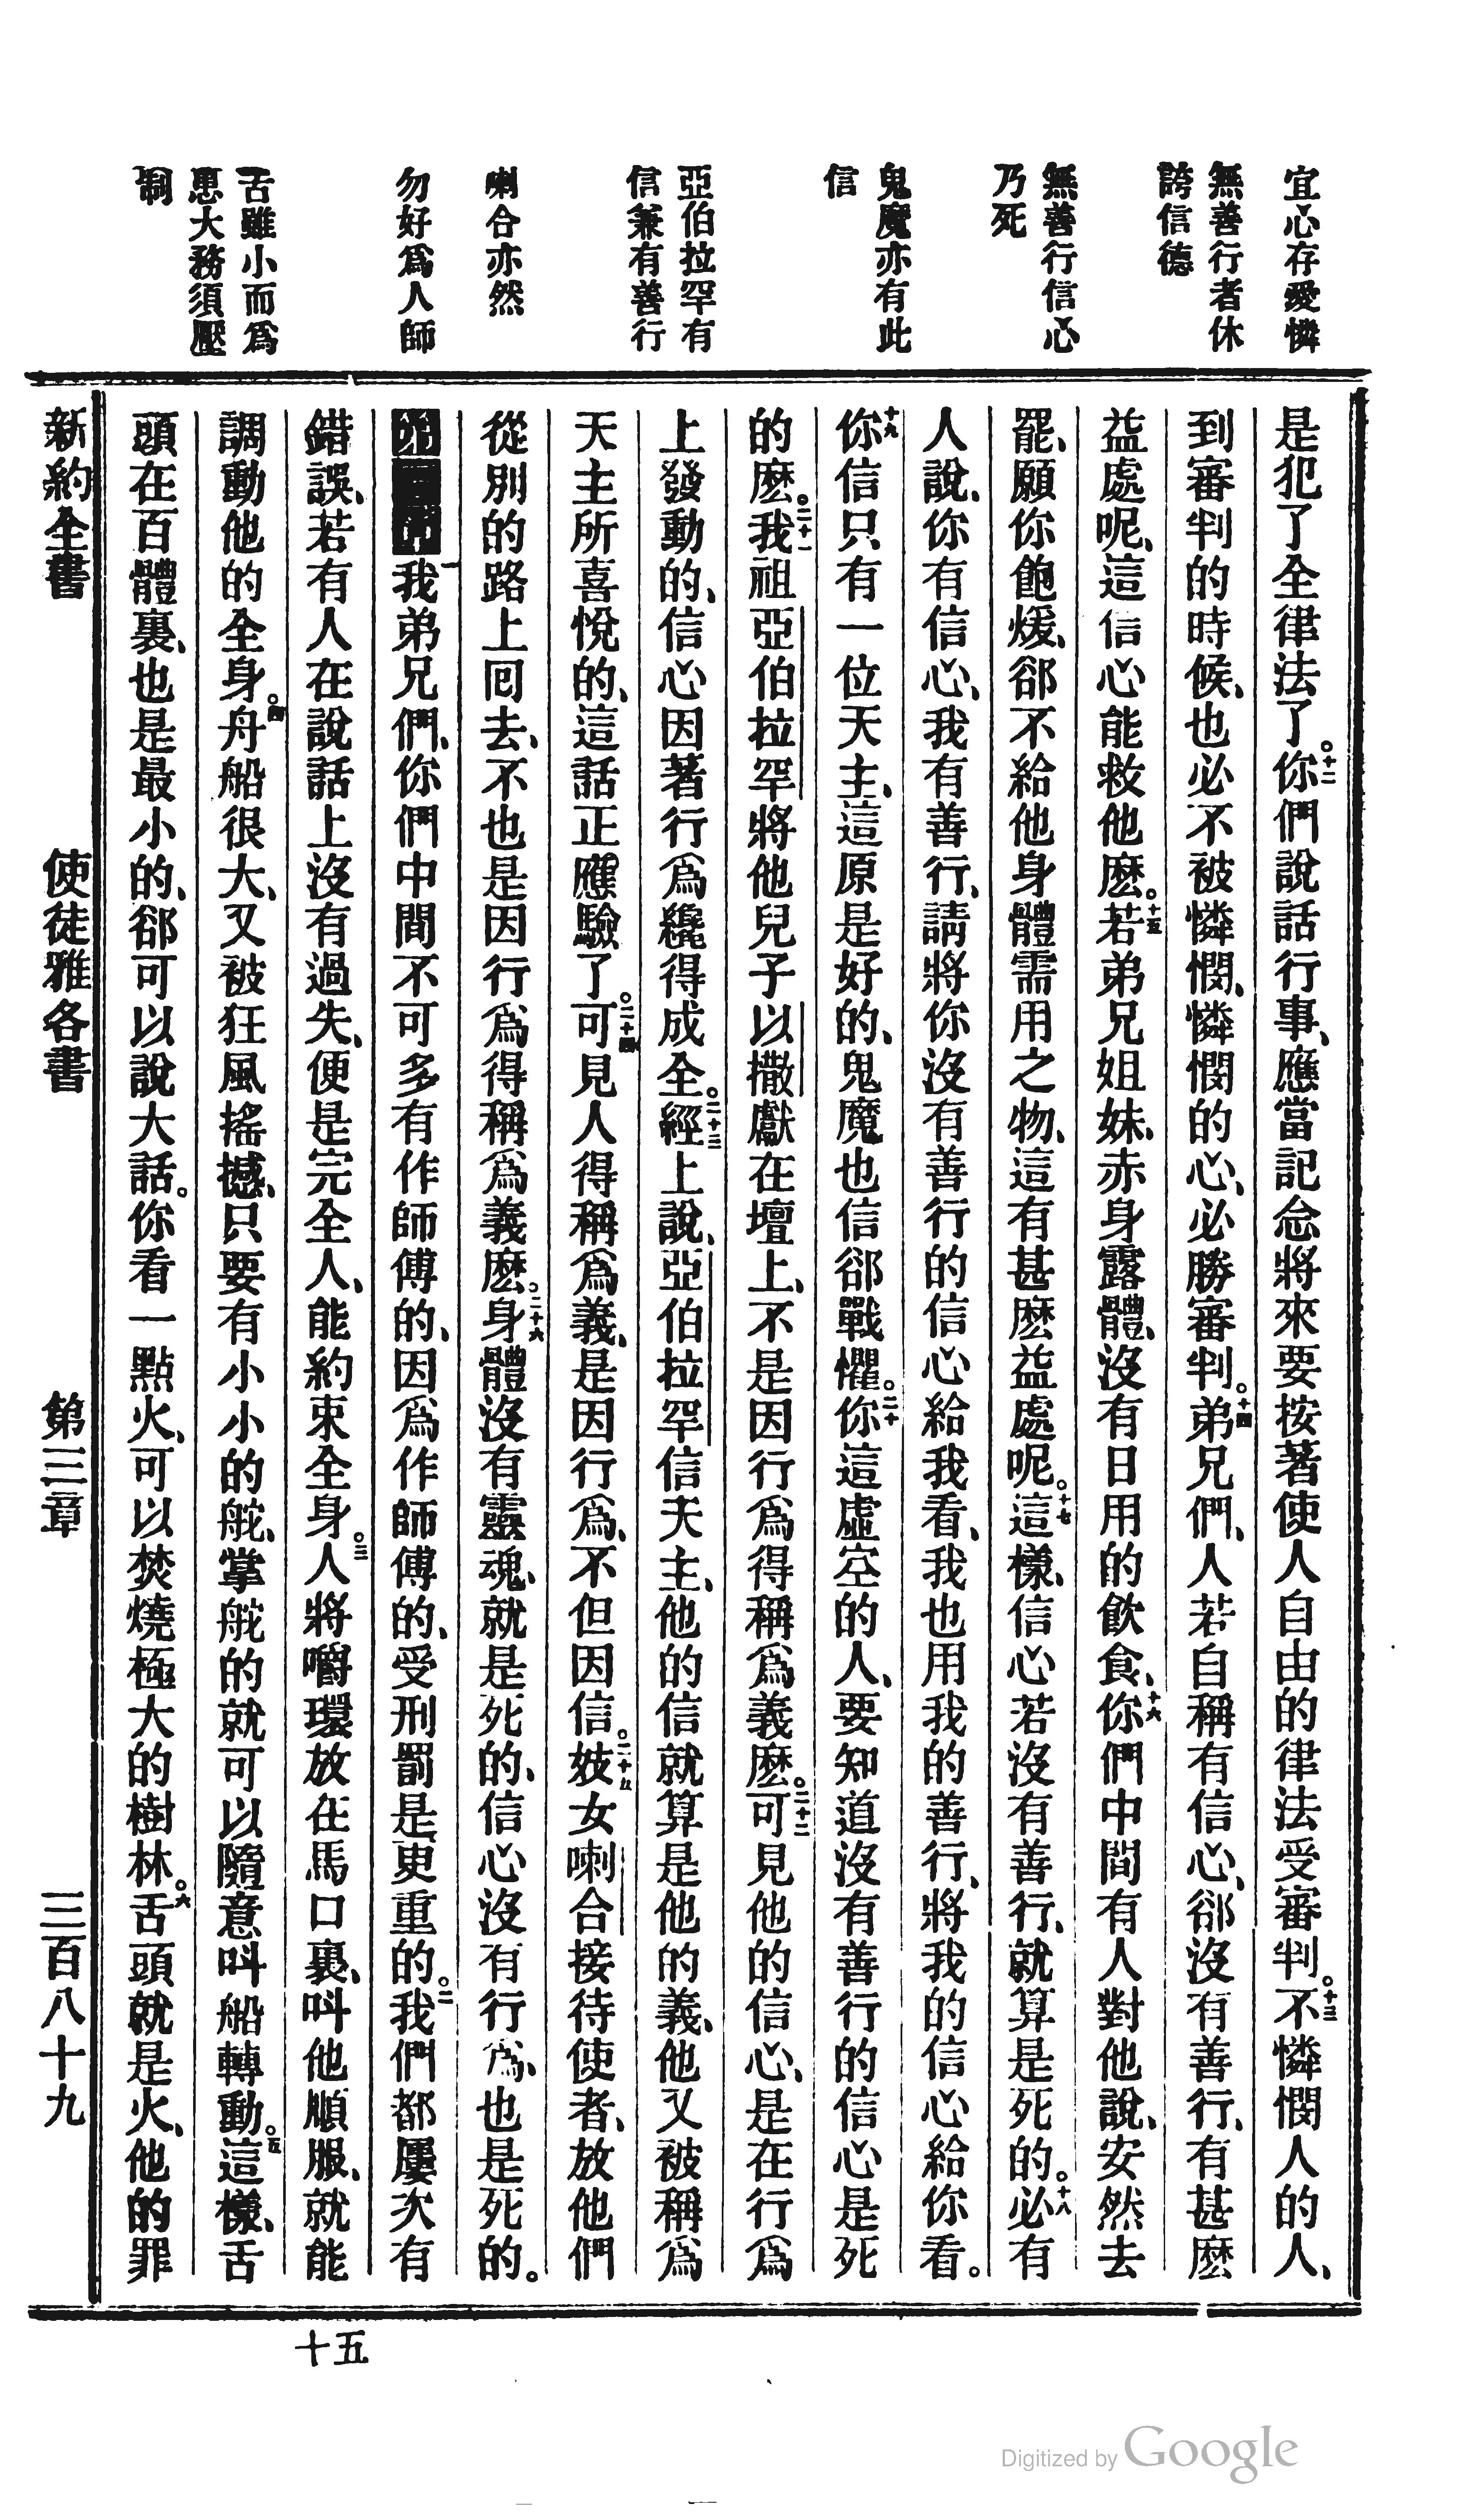 宜心存愛憐
無善行者休
誇信德
無善行信心
乃死
鬼魔亦有此
信
亞伯拉罕有
信兼有善行
喇合亦然
勿好爲人師
舌雖小而爲
患大務須壓
制
是犯了全律法了。十二你們說話行事、應當記念將來要按著使人自由的律法受審判。十三不憐憫人的人、
到審判的時候、也必不被憐憫、憐憫的心、必勝審判。十四弟兄們、人若自稱有信心、郤沒有善行、有甚麽
益處呢、這信心能救他麽。十五若弟兄姐妹、赤身露體、沒有日用的飲食、十六你們中間有人對他說、安然去
罷、願你飽煖、郤不給他身體需用之物、這有甚麽益處呢。十七這樣、信心若沒有善行、就算是死的。十八必有
人說、你有信心、我有善行、請將你沒有善行的信心給我看、我也用我的善行、將我的信心給你看。
十九你信只有一位天主、這原是好的、鬼魔也信郤戰懼。二十你這虛空的人、要知道沒有善行的信心是死
的麽。二十一我祖亞伯拉罕將他兒子以撒獻在壇上、不是因行爲得稱爲義麽。二十二可見他的信心、是在行爲
上發動的、信心因著行爲纔得成全。二十三經上說、亞伯拉罕信天主、他的信就算是他的義、他又被稱爲
天主所喜悅的、這話正應驗了。二十四可見人得稱爲義、是因行爲、不但因信。二十五妓女喇合接待使者、放他們
從別的路上回去、不也是因行爲得稱爲義麽。二十六身體沒有靈魂、就是死的、信心沒有行爲、也是死的。
一我弟兄們、你們中間不可多有作師傅的、因爲作師傅的、受刑罰是更重的。二我們都屢次有
錯誤、若有人在說話上沒有過失、便是完全人、能約束全身。三人將嚼環放在馬口裏、叫他順服、就能
調動他的全身。四舟船很大、又被狂風搖撼、只要有小小的舵、掌舵的就可以隨意叫船轉動。五這樣、舌
頭在百體裏、也是最小的、郤可以說大話。你看一點火、可以焚燒極大的樹林。六舌頭就是火、他的罪
新約全書 使徒雅各書 第三章 三百八十九
十五
Digitized by Google